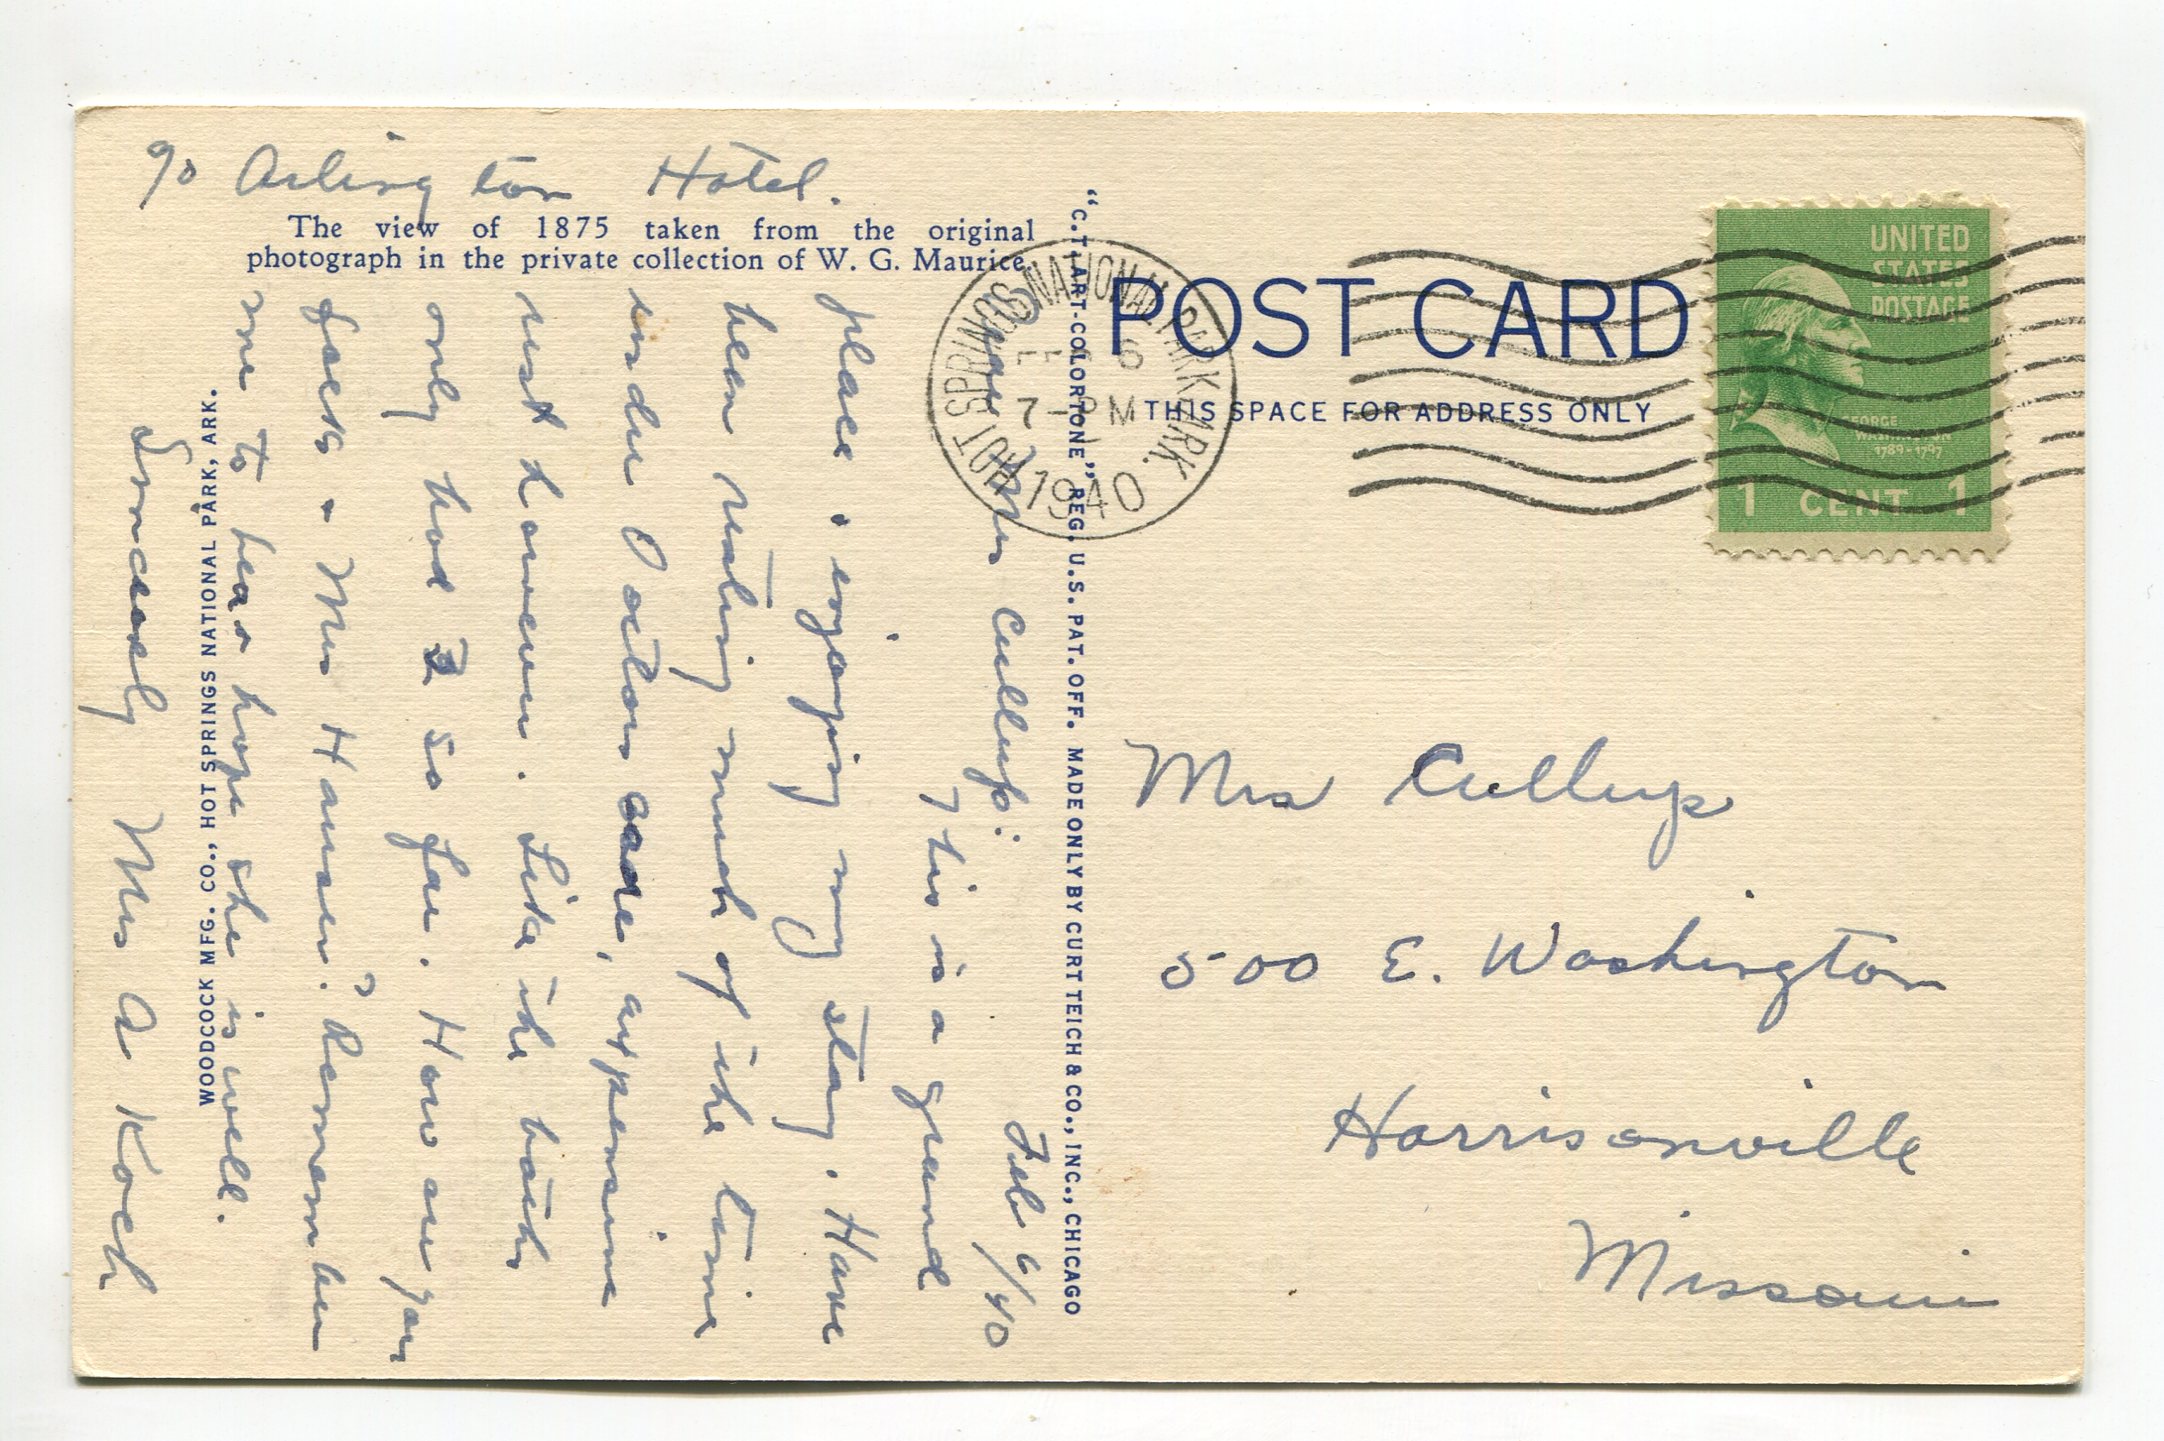 c/o Arlington Hotel.
The view of 1875 taken from the original
photograph in the private collection of W. G. Maurice.
Feb 6/40
Dear Mrs Cullup:
This is a grand
place & enjoying my stay. Have
been resting much of the time
under Doctors care, expensive
rest however. Like the baths
only had 2 so far. How are your
feets & Mrs Hansen? Remember
me to her & hope she is well.
Sincerely Mrs A Koch
WOODCOCK MFG. CO., HOT SPRINGS NATIONAL PARK, ARK.
"C.T. ART-COLORTONE" REG. U.S. PAT. OFF. MADE ONLY BY CURT TEICH & CO., INC., CHICAGO
POST CARD
THIS SPACE FOR ADDRESS ONLY
HOT SPRINGS NATIONAL PARK, ARK.
FEB 6
7-PM
1940
UNITED
STATES
POSTAGE
GEORGE
WASHINGTON
1789-1797
1 CENT 1
Mrs Cullup
500 E. Washington
Harrisonville
Missouri